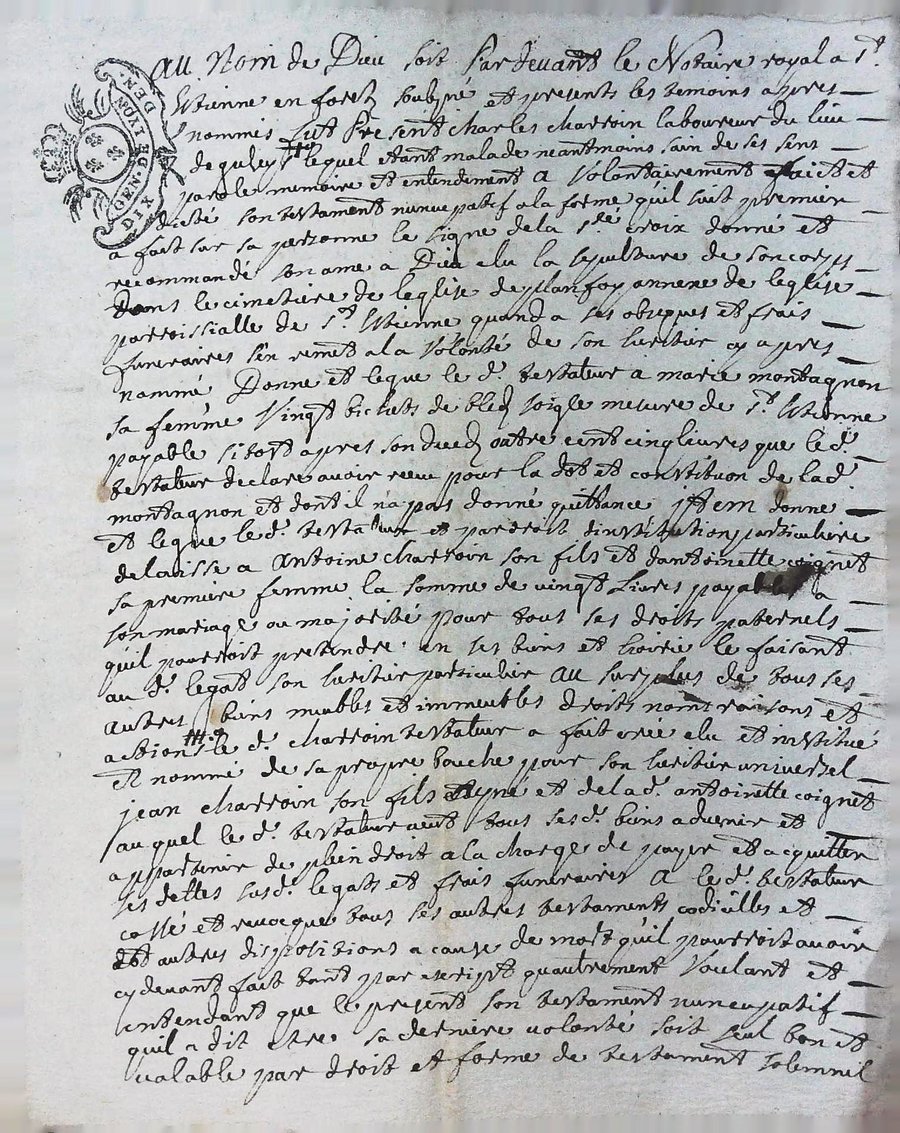 GEN. LYON DIX DEN.
Au Nom de Dieu soit Pardevant le Notaire royal a St
Etienne en forets soubzné et presents les temoins apres
nommés fut Present Charles Charroin laboureur du lieu
de lequel etant malade neantmoins sain de ses sens
parolle memoire et entendement a volontairement faict et
dicté son testament nuncupatif a la forme quil suit premier
a fait sur sa personne le signe de la Ste croix donné et
recommandé son ame a Dieu elu la sepulture de son corps
Dans le cimetiere de leglise de planfoy annexe de leglise
parroissialle de St Etienne quand a ses obseques et frais
funeraires s'en remet a la volonté de son heritier cy apres
nommé Donne et legue le d. testateur a marie montagnon
sa femme Vingt bichets de bled seigle mesure de St Etienne
payable sitost apres son deced outre cent cinq livres que le d.
testateur declare avoir receu pour la dot et constituon de lad.
montagnon et dont il n'a pas donné quittance Item donne
et legue le d. testateur et par droit d'institution particuliere
delaisse a Antoine Charroin son fils et dantoinette coignet
sa premiere femme la somme de vingt Livres payables a
son mariage ou majorité pour tous ses droits paternels
quil pourroit pretendre en ses biens et hoirie le faisant
au d. legat son heritier particulier Au surplus de tous ses
autres biens meubles et immeubles droits noms raisons et
actions le d. Charroin testateur a fait créé elu et institué
Et nommé de sa propre bouche pour son heritier universel
jean Charroin son fils ayné et de lad. antoinette coignet
auquel le d. testateur veut tous sesd. biens advenir et
appartenir de plein droit a la charge de payer et acquitter
ses dettes susd. legats et frais funeraires A le d. testateur
cassé et revocque tous ses autres testaments codicilles et
autres dispositions a cause de mort quil pourroit avoir
cy devant fait tant par escript quautrement Voulant et
entendant que le present son testament nuncupatif
quil a dit etre sa derniere volonté soit seul bon et
valable par droit et forme de testament solemnel